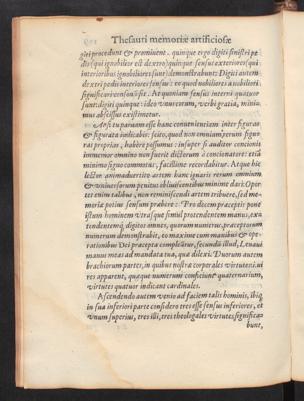 Thesauri memoriæ artificiosæ
giti procedunt & prominent. quinque ergo digiti sinistri pe
dis (qui ignobilior est dextro) quinque sensus exteriores (qui
interioribus ignobiliores sunt) demonstrabunt: Digiti autem
dextri pedis interiores sensus: eo quod nobiliora nobiliori
significari consueuit. At quoniam sensus interni quatuor
sunt: digiti quinque: ideo vnus eorum, verbi gratia, minimus
abscissus existimetur.
At si tu pariam esse hanc conuenientiam inter figuram
& figurata inficiabis: scito, quod non omnium rerum figuras
proprias, habere possumus: insuper si auditor concionis
immemor omnino non fuerit dictorum à concionatore: et si à
minimo signo commotus, facillimè recordabitur. Atque hic
lector animaduertito artem hanc ignaris rerum omnium
& vniuersorum penitus obliuiscentibus minimè dari: Oportet
enim talibus, non reminiscendi artem tribuere, sed memoriæ
potius sensum præbere: Pro decem præceptis pone
istum hominem vtrasque simul protendentem manus, extendentemque
digitos omnes, quorum numerus, præceptorum
numerum demonstrabit, eo maximè cum manibus & operationibus
Dei præcepta compleantur, secundùm illud, Leuaui
manus meas ad mandata tua, quæ dilexi. Duorum autem
brachiorum partes, in quibus nostra corporales virtutes: vires
apparent, quæque numerum conficiunt quaternarium,
virtutes quatuor indicant cardinales.
Ascendendo autem venio ad faciem talis hominis, ibique
in sua inferiori parte considero tres esse sensus inferiores, et
vnum superius, tres illi, tres theologales virtutes significabunt,